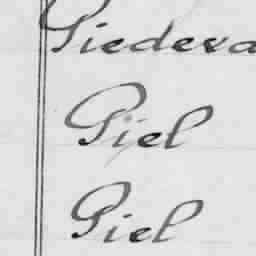 Piedera
Piel
Piel